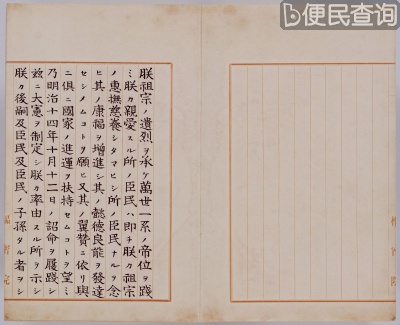 便民查询
朕祖宗ノ遺烈ヲ承ケ萬世一系ノ帝位ヲ踐
ミ朕カ親愛スル所ノ臣民ハ即チ朕カ祖宗
ノ惠撫慈養シタマヒシ所ノ臣民ナルヲ念
ヒ其ノ康福ヲ增進シ其ノ懿德良能ヲ發達
セシメムコトヲ願ヒ又其ノ翼贊ニ依リ與
ニ俱ニ國家ノ進運ヲ扶持セムコトヲ望ミ
乃明治十四年十月十二日ノ詔命ヲ履踐シ
玆ニ大憲ヲ制定シ朕カ率由スル所ヲ示シ
朕カ後嗣及臣民及臣民ノ子孫タル者ヲシ